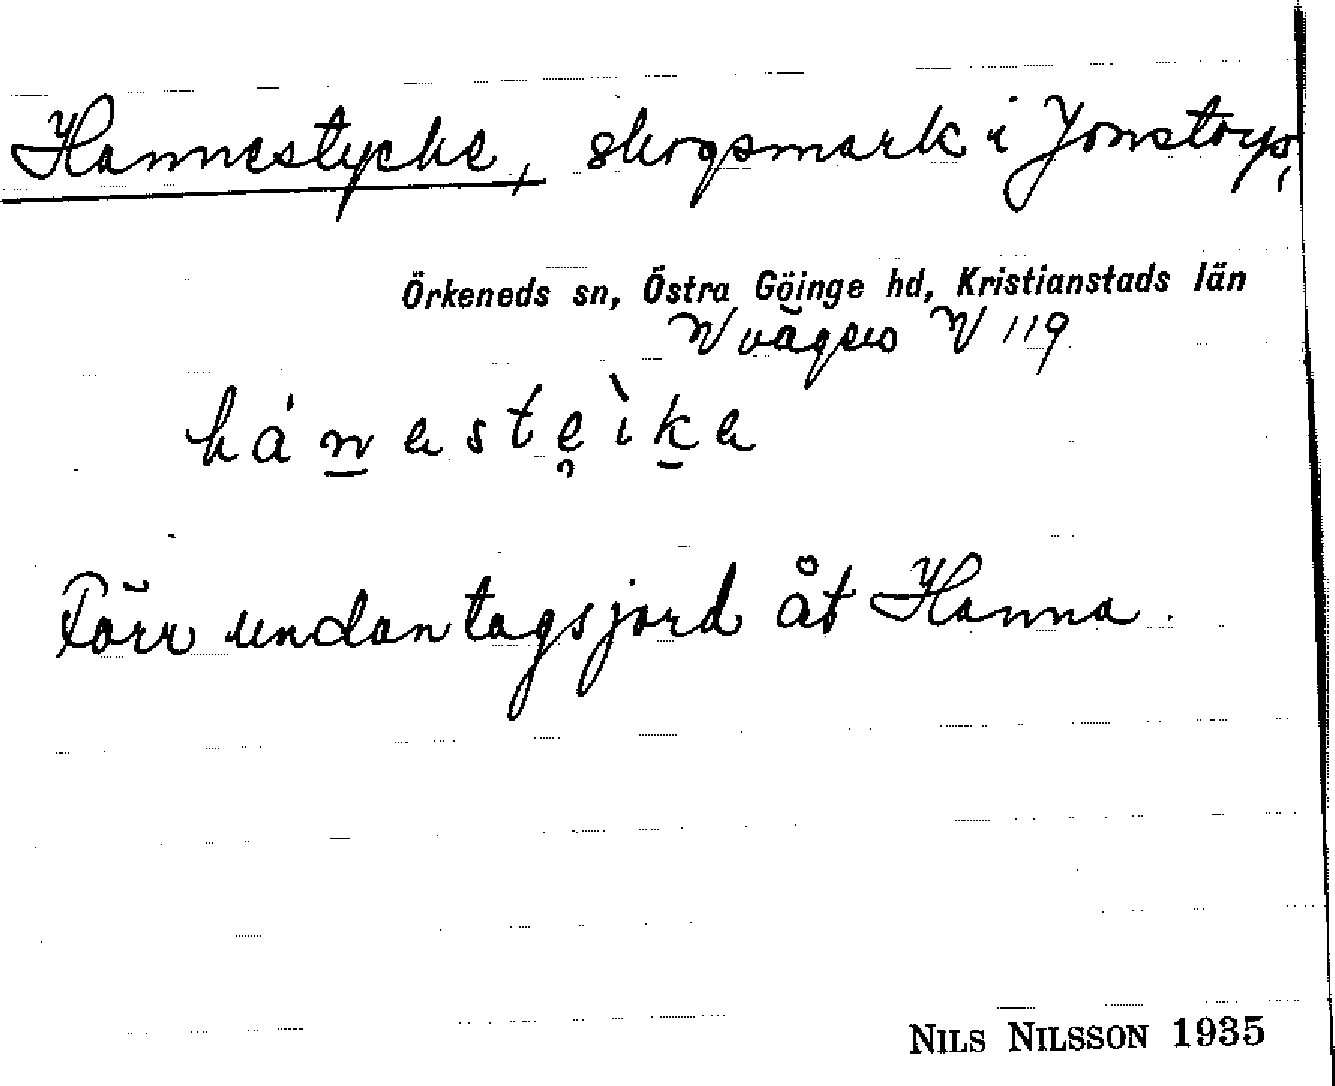 Hannestycke, skogsmark i Jonstorp,
Örkeneds sn, Östra Göinge hd, Kristianstads län
N vägen N 119
hánesteìke
Förr undantagsjord åt Hanna.
NILS NILSSON 1935